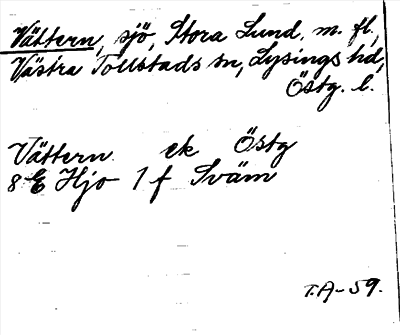 Vättern, sjö, Stora Lund, m. fl.,
Västra Tollstads sn, Lysings hd,
Östg. l.
Vättern ek Östg
8 E Hjo 1 f Sväm
T.A-59.